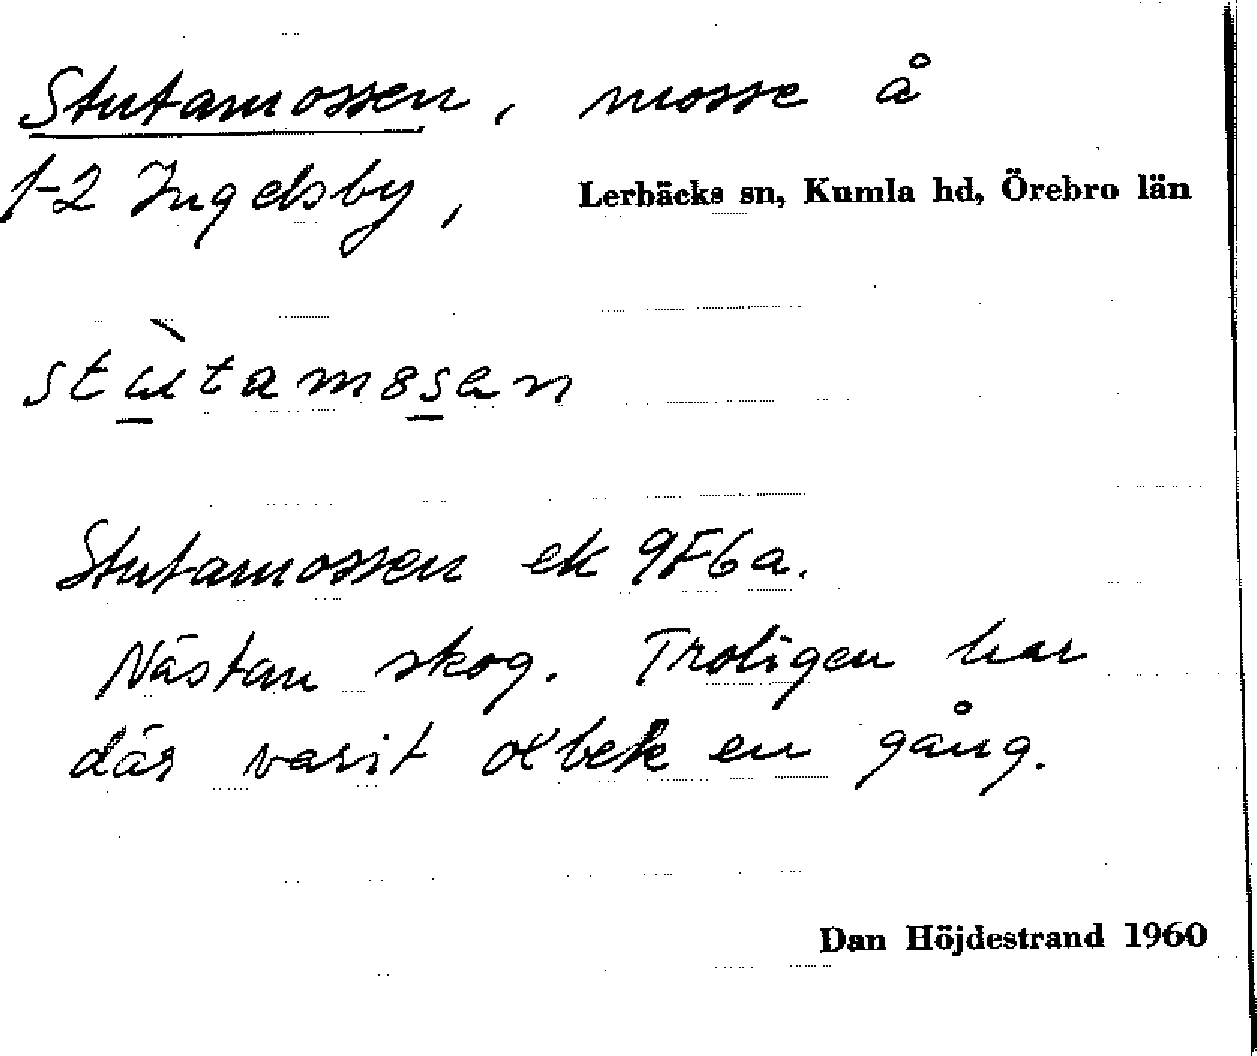 Stutamossen, mosse å
1-2 Ingelsby, Lerbäcks sn, Kumla hd, Örebro län
stùtamosen
Stutamossen ek 9F6a.
Nästan skog. Troligen har
där varit en gång.
Dan Höjdestrand 1960